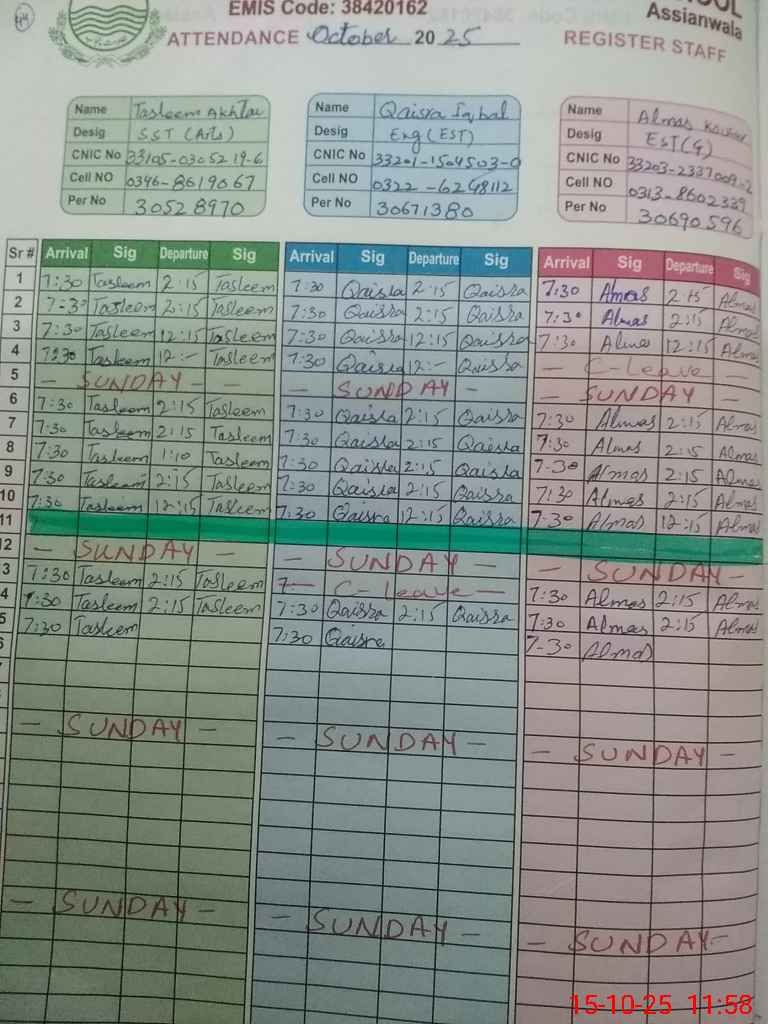 EMIS Code: 38420162
Assianwala
ATTENDANCE October 2025
REGISTER STAFF
Name Tasleem Akhtar
Desig SST (Arts)
CNIC No 33105-0305219-6
Cell NO 0346-8619067
Per No 30528970
Name Qaisra Iqbal
Desig Eng (EST)
CNIC No 33201-1504503-0
Cell NO 0322-6248112
Per No 30671380
Name Almas
Desig EST(G)
CNIC No 33203-2337009-2
Cell NO 0313-8602339
Per No 30690596
Sr # Arrival Sig Departure Sig Arrival Sig Departure Sig Arrival Sig Departure Sig
1 7:30 Tasleem 2:15 Tasleem 7:30 Qaisra 2:15 Qaisra 7:30 Almas 2:15 Almas
2 7:30 Tasleem 2:15 Tasleem 7:30 Qaisra 2:15 Qaisra 7:30 Almas 2:15 Almas
3 7:30 Tasleem 12:15 Tasleem 7:30 Qaisra 12:15 Qaisra 7:30 Almas 12:15 Almas
4 7:30 Tasleem 12:- Tasleem 7:30 Qaisra 12:- Qaisra - C-leave -
5 - SUNDAY - - SUNDAY - - SUNDAY -
6 7:30 Tasleem 2:15 Tasleem 7:30 Qaisra 2:15 Qaisra 7:30 Almas 2:15 Almas
7 7:30 Tasleem 2:15 Tasleem 7:30 Qaisra 2:15 Qaisra 7:30 Almas 2:15 Almas
8 7:30 Tasleem 1:10 Tasleem 7:30 Qaisra 2:15 Qaisra 7-30 Almas 2:15 Almas
9 7:30 Tasleem 2:15 Tasleem 7:30 Qaisra 2:15 Qaisra 7:30 Almas 2:15 Almas
10 7:30 Tasleem 12:15 Tasleem 7:30 Qaisra 12:15 Qaisra 7-30 Almas 12:15 Almas
11
12 - SUNDAY - - SUNDAY - - SUNDAY -
3 7:30 Tasleem 2:15 Tasleem 7:- C-leave - 7:30 Almas 2:15 Almas
4 7:30 Tasleem 2:15 Tasleem 7:30 Qaisra 2:15 Qaisra 7:30 Almas 2:15 Almas
5 7:30 Tasleem 7:30 Qaisra 7-30 Almas
6
- SUNDAY - - SUNDAY - - SUNDAY -
- SUNDAY - - SUNDAY - - SUNDAY -
15-10-25 11:58